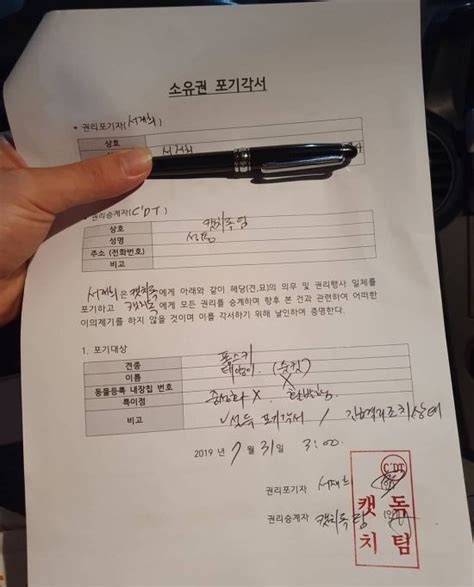 소유권 포기각서
• 권리포기자(서재희)
상호
서재희
권리승계자(C'DT)
상호 캣치독팀
성명
주소 (전화번호)
비고
서재희은 캣치독에게 아래와 같이 해당(견,묘)의 의무 및 권리행사 일체를
포기하고 캣치독에게 모든 권리를 승계하며 향후 본 건과 관련하여 어떠한
이의제기를 하지 않을 것이며 이를 각서하기 위해 날인하여 증명한다.
1. 포기대상
견종 폼스키
이름
동물등록 내장칩 번호 X
특이점 중성화 X
비고 포기각서 /
2019 년 7 월 31 일 3:00
권리포기자 서재희
권리승계자 캣치독팀
C'DT
캣 독
치 팀